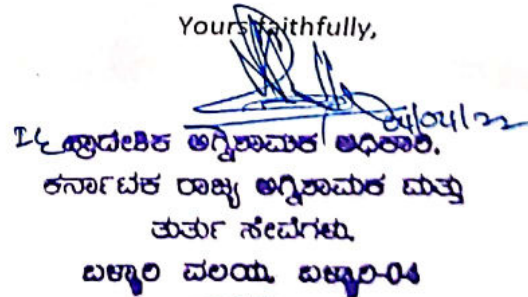 Yours faithfully,
04/04/22
I/c ಪ್ರಾದೇಶಿಕ ಅಗ್ನಿಶಾಮಕ ಅಧಿಕಾರಿ.
ಕರ್ನಾಟಕ ರಾಜ್ಯ ಅಗ್ನಿಶಾಮಕ ಮತ್ತು
ತುರ್ತು ಸೇವೆಗಳು.
ಬಳ್ಳಾರಿ ವಲಯ, ಬಳ್ಳಾರಿ-04